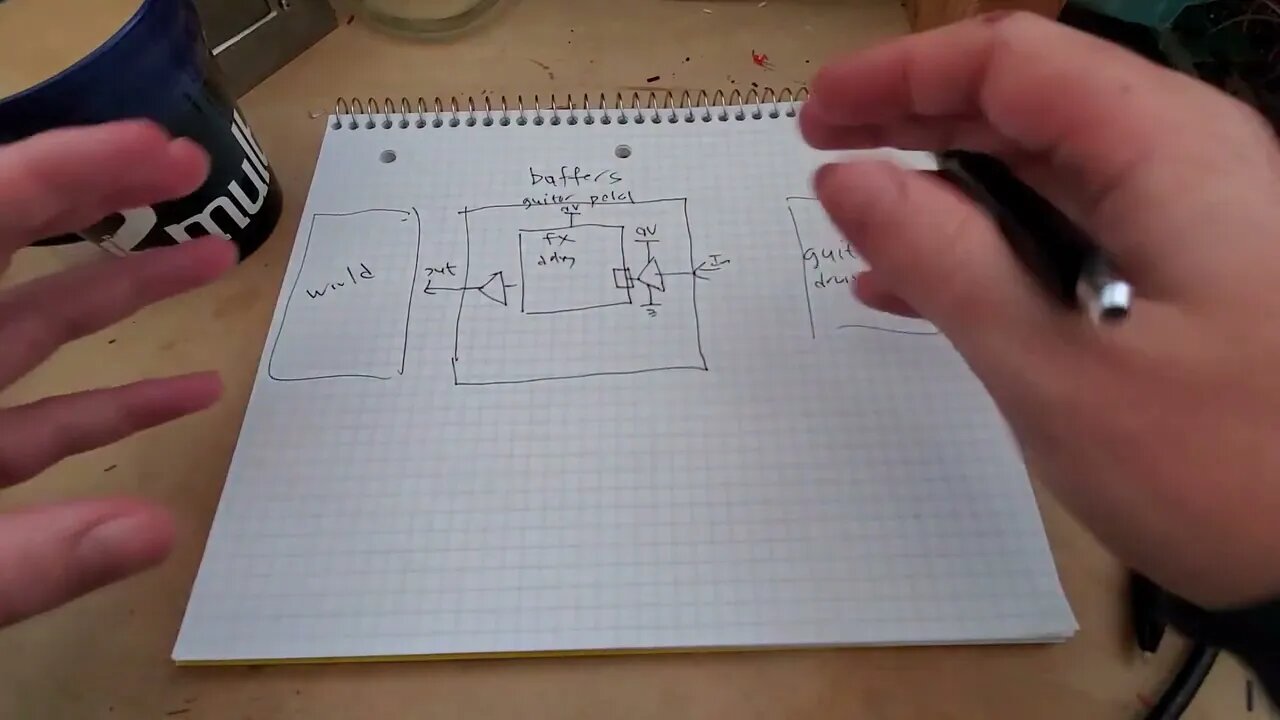 buffers
guitar pedal
9V
fx
delay
9V
In
out
world
guit
dru
mull